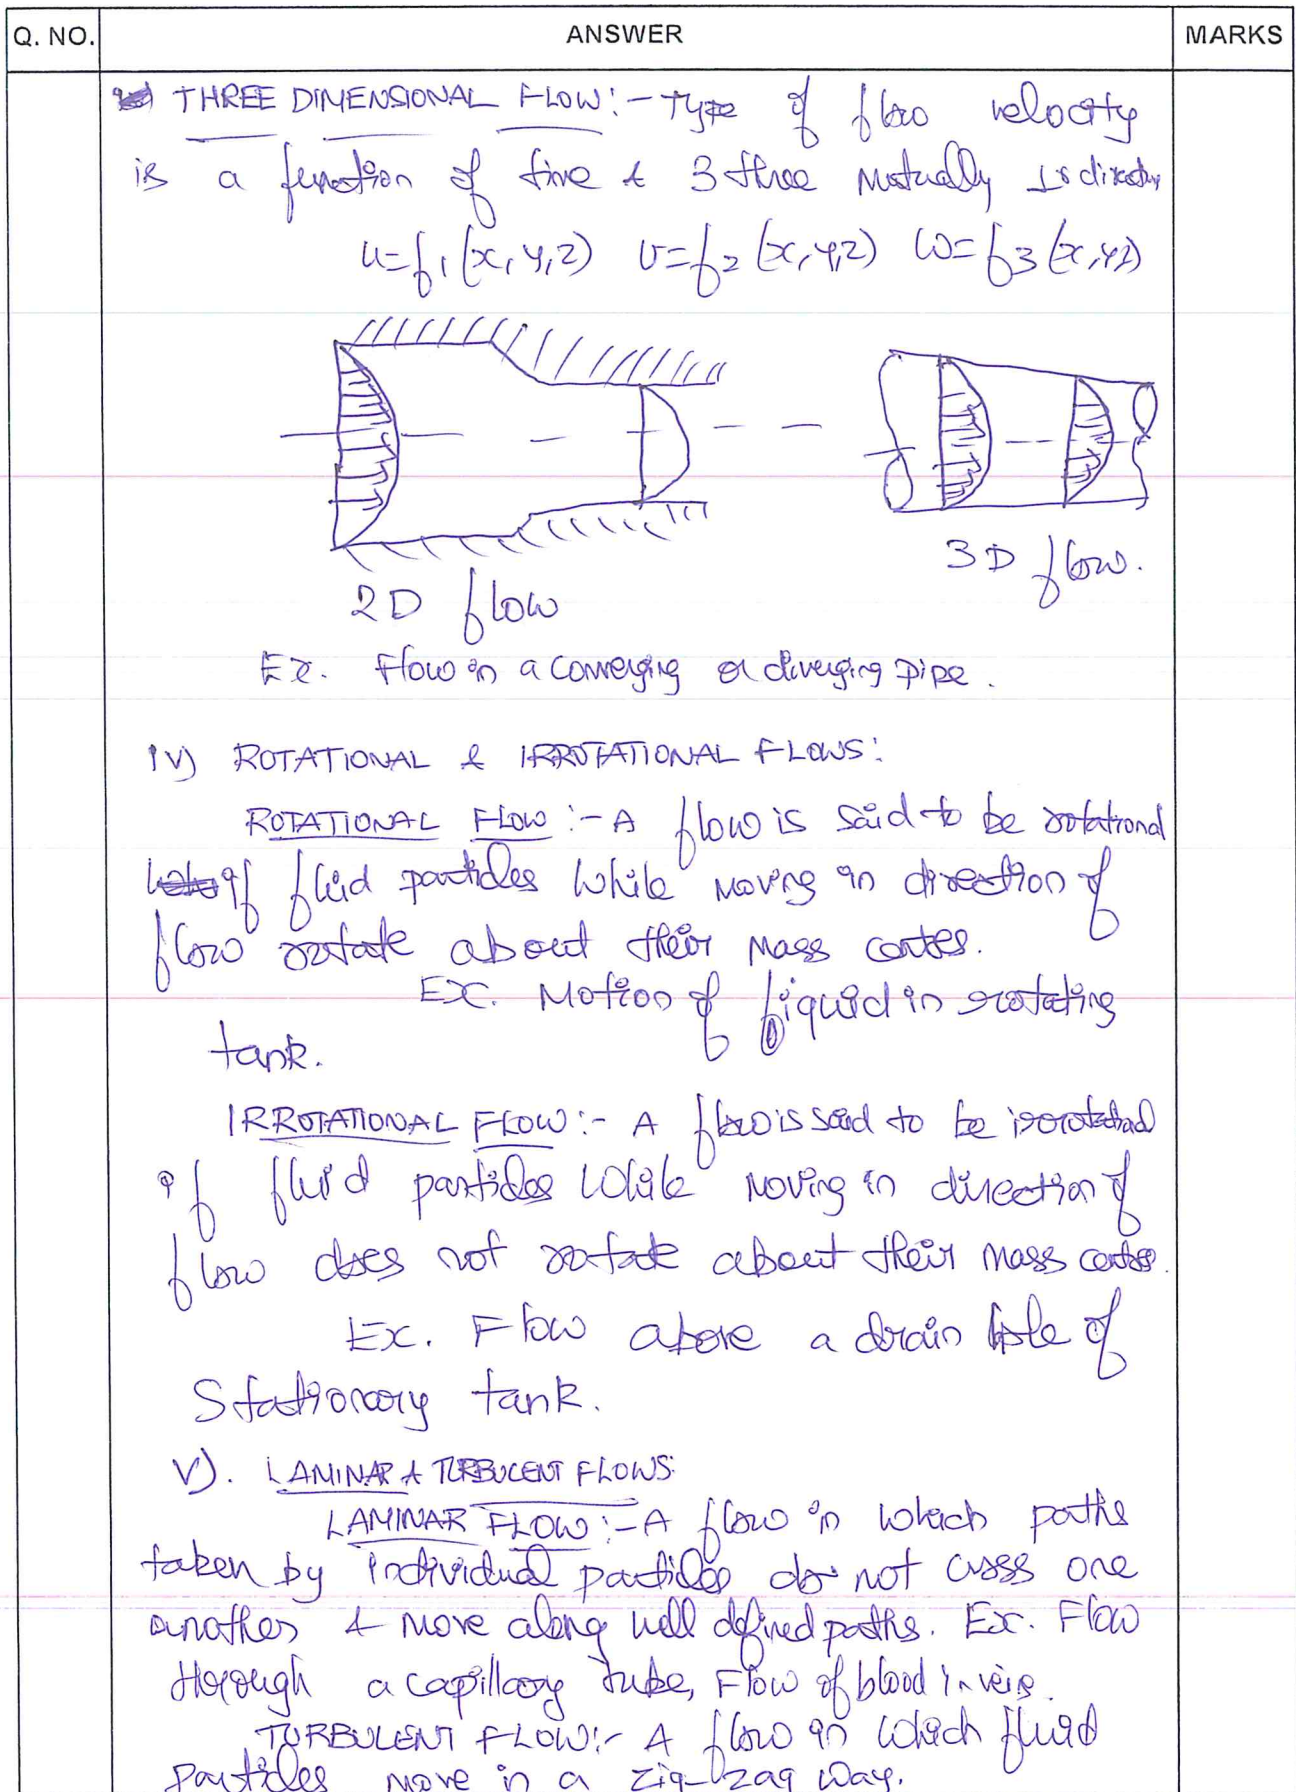 Q. NO. ANSWER MARKS
THREE DIMENSIONAL FLOW:- Type of flow velocity
is a function of time & 3 three mutually ⊥r
u=f1(x,y,z) v=f2(x,y,z) w=f3(x,y,z)
2D flow
3D flow.
Ex. Flow in a converging or diverging pipe.
iv) ROTATIONAL & IRROTATIONAL FLOWS:
ROTATIONAL FLOW:- A flow is said to be rotational
if fluid particles while moving in direction of
flow rotate about their mass center.
EX. Motion of liquid in rotating
tank.
IRROTATIONAL FLOW:- A flow is said to be
if fluid particles while moving in direction of
flow does not rotate about their mass center.
Ex. Flow above a drain hole of
Stationary tank.
V). LAMINAR & TURBULENT FLOWS:
LAMINAR FLOW:- A flow in which paths
taken by individual particles do not cross one
another & move along well defined paths. Ex. Flow
through a capillary tube, Flow of blood in veins.
TURBULENT FLOW:- A flow in which fluid
Particles move in a zig-zag way.